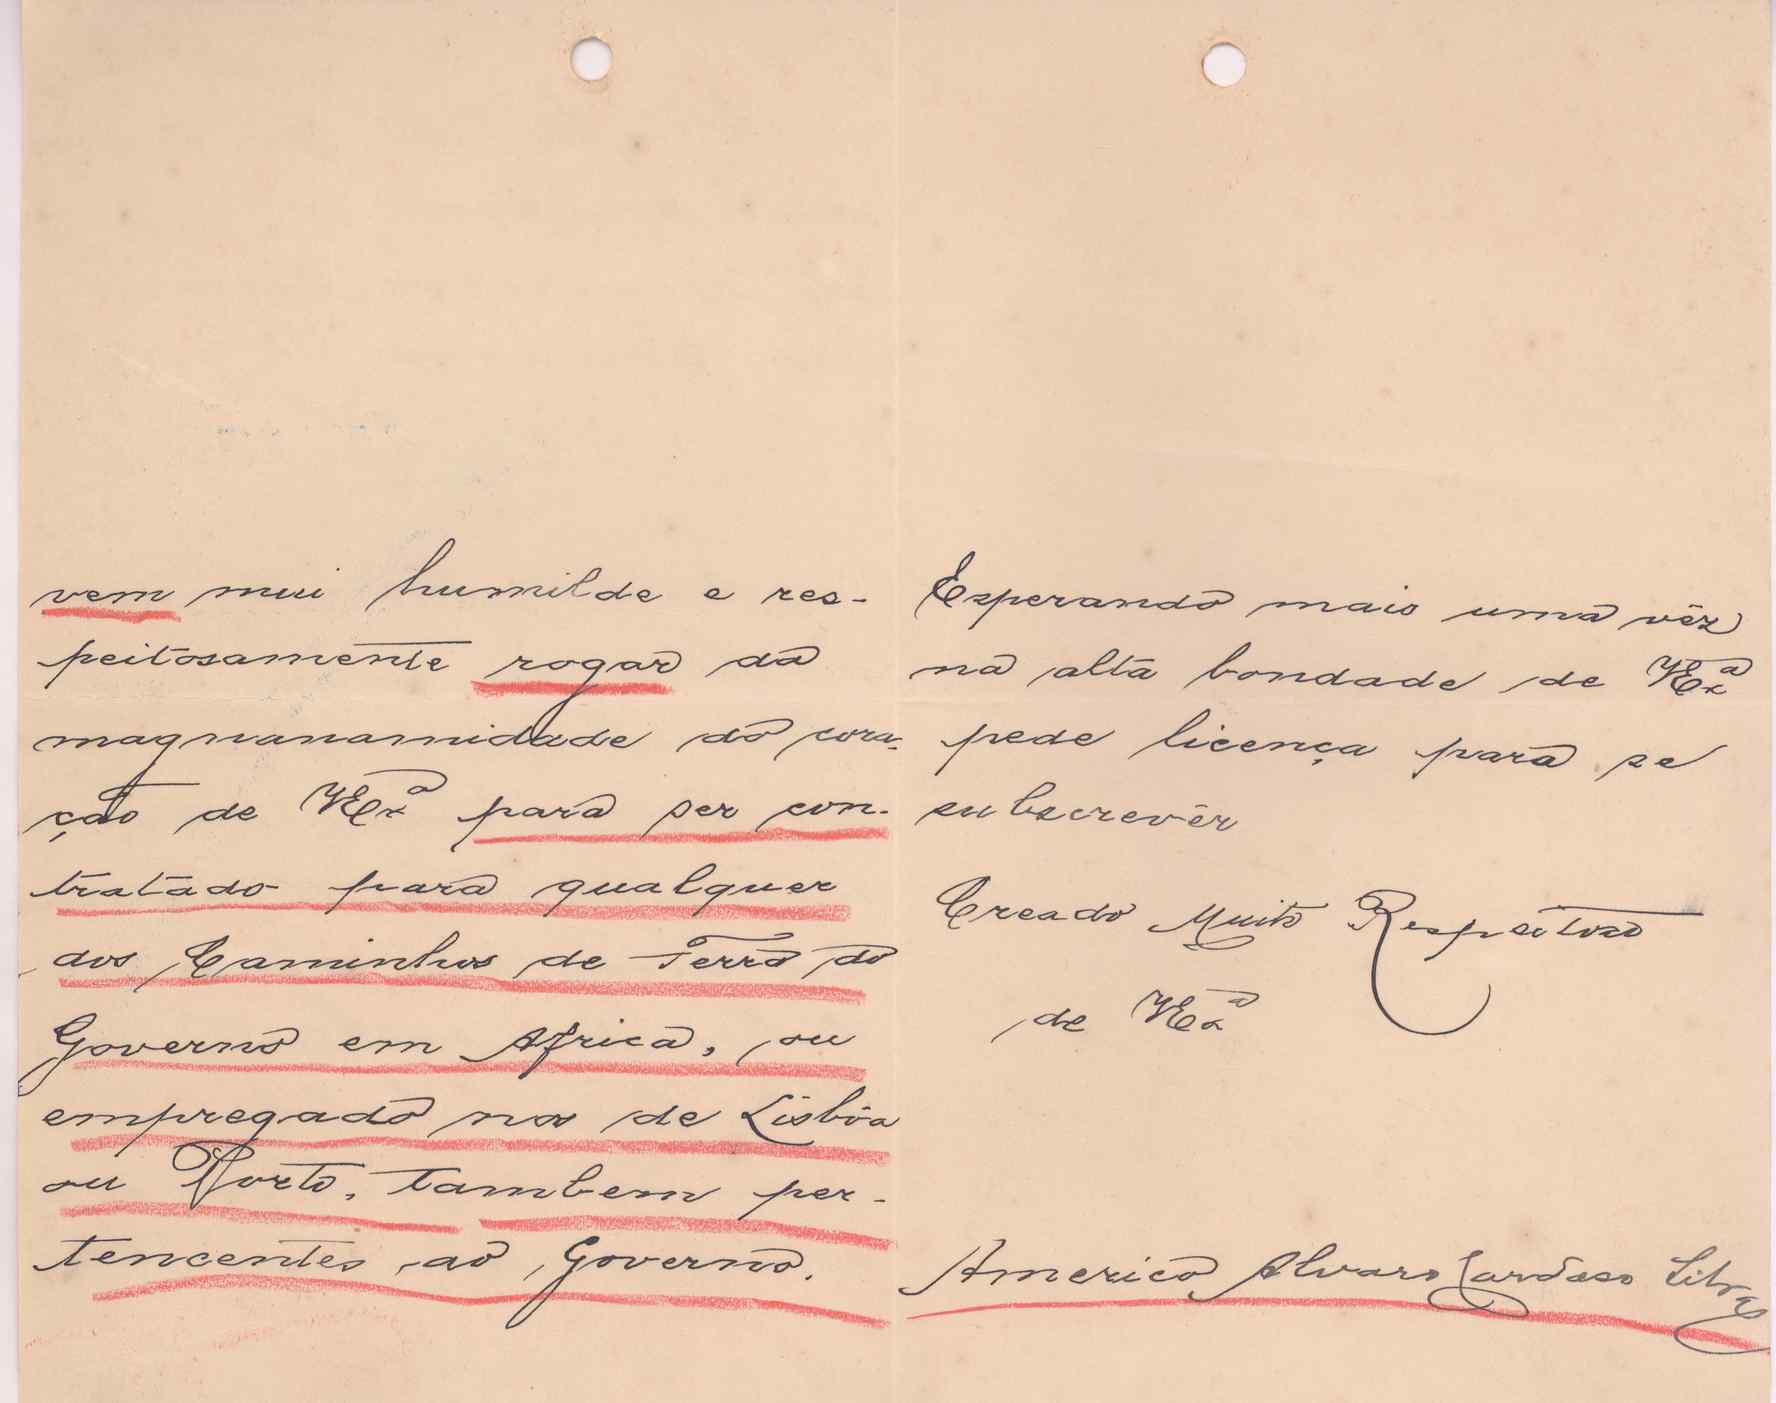 vem mui humilde e res-
peitosamente rogar da
magnanamidade do cora-
ção de VExª para ser con-
tratado para qualquer
dos Caminhos de Ferro do
Governo em Africa, ou
empregado nos de Lisbôa
ou Porto, tambem per-
tencentes ao Governo.
Esperando mais uma vêz
na alta bondade de VExª
pede licença para se
subscrevêr
Creado Muito Respeitoso
de VExª
Americo Alvaro Cardoso Silva